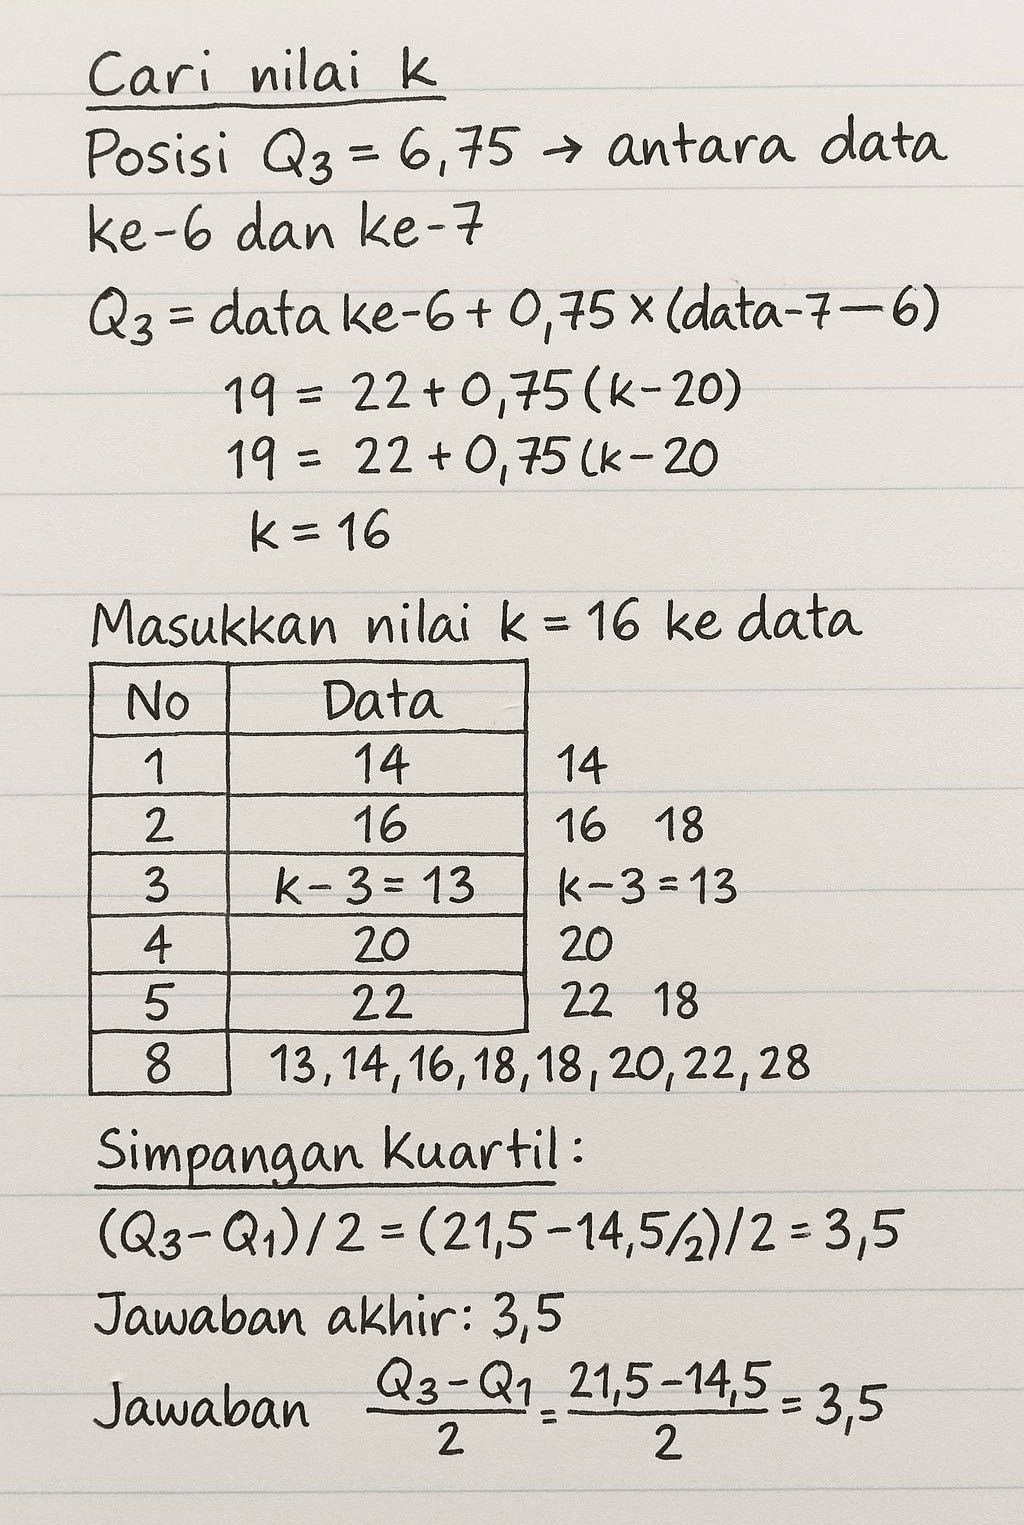 Cari nilai k
Posisi Q₃ = 6,75 → antara data
ke-6 dan ke-7
Q₃ = data ke-6 + 0,75 × (data-7 — 6)
19 = 22 + 0,75 (k - 20)
19 = 22 + 0,75 (k - 20
k = 16
Masukkan nilai k = 16 ke data
No Data
1 14 14
2 16 16 18
3 k - 3 = 13 k - 3 = 13
4 20 20
5 22 22 18
8 13, 14, 16, 18, 18, 20, 22, 28
Simpangan Kuartil:
(Q₃ - Q₁) / 2 = (21,5 - 14,5/2) / 2 = 3,5
Jawaban akhir: 3,5
Jawaban (Q₃ - Q₁)/2 = (21,5 - 14,5)/2 = 3,5